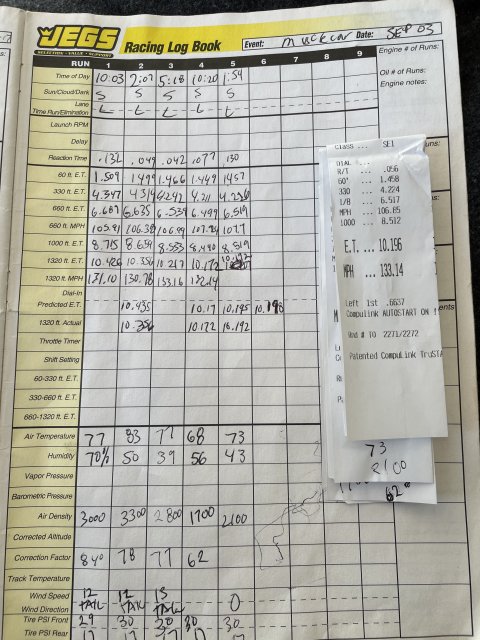 JEGS
SELECTION · VALUE · SUPPORT
Racing Log Book
Event: muckcar Date: SEP 03
RUN 1 2 3 4 5 6 7 8 9
Engine # of Runs:
Oil # of Runs:
Engine notes:
Time of Day 10:03 2:07 5:18 10:20 1:54
Sun/Cloud/Dark S S S S S
Lane
Time Run/Elimination L L L L L
Launch RPM
Delay
Reaction Time .132 .049 .042 .077 .130
60 ft. E.T. 1.509 1.499 1.466 1.449 1.457
330 ft. E.T. 4.347 4.314 4.247 4.211 4.236
660 ft E.T. 6.687 6.635 6.539 6.499 6.519
660 ft. MPH 105.91 106.38 106.99 107.24 107.7
1000 ft E.T. 8.715 8.659 8.553 8.490 8.519
1320 ft. E.T. 10.426 10.356 10.217 10.172 10.192
1320 ft. MPH 131.10 130.78 133.16 132.14
Dial-In
Predicted E.T. 10.435 10.17 10.195 10.198
1320 ft. Actual 10.356 10.172 10.192
Throttle Timer
Shift Setting
60-330 ft. E.T.
330-660 ft. E.T.
660-1320 ft. E.T.
Air Temperature 77 83 77 68 73
Humidity 70% 50 39 56 43
Vapor Pressure
Barometric Pressure
Air Density 3000 3300 2800 1700 2100
Corrected Altitude
Correction Factor 840 78 77 62
Track Temperature
Wind Speed 12 12 15
Wind Direction TAIL TAIL TAIL 0
Tire PSI Front 29 30 30 30 30
Tire PSI Rear
Class ... SE1
DIAL ...
R/T ... .056
60' ... 1.458
330 ... 4.224
1/8 ... 6.517
MPH ... 106.85
1000 ... 8.512
E.T. ... 10.196
MPH ... 133.14
Left 1st .6637
Compulink AUTOSTART ON
2271/2272
Patented Compulink
73
2100
62